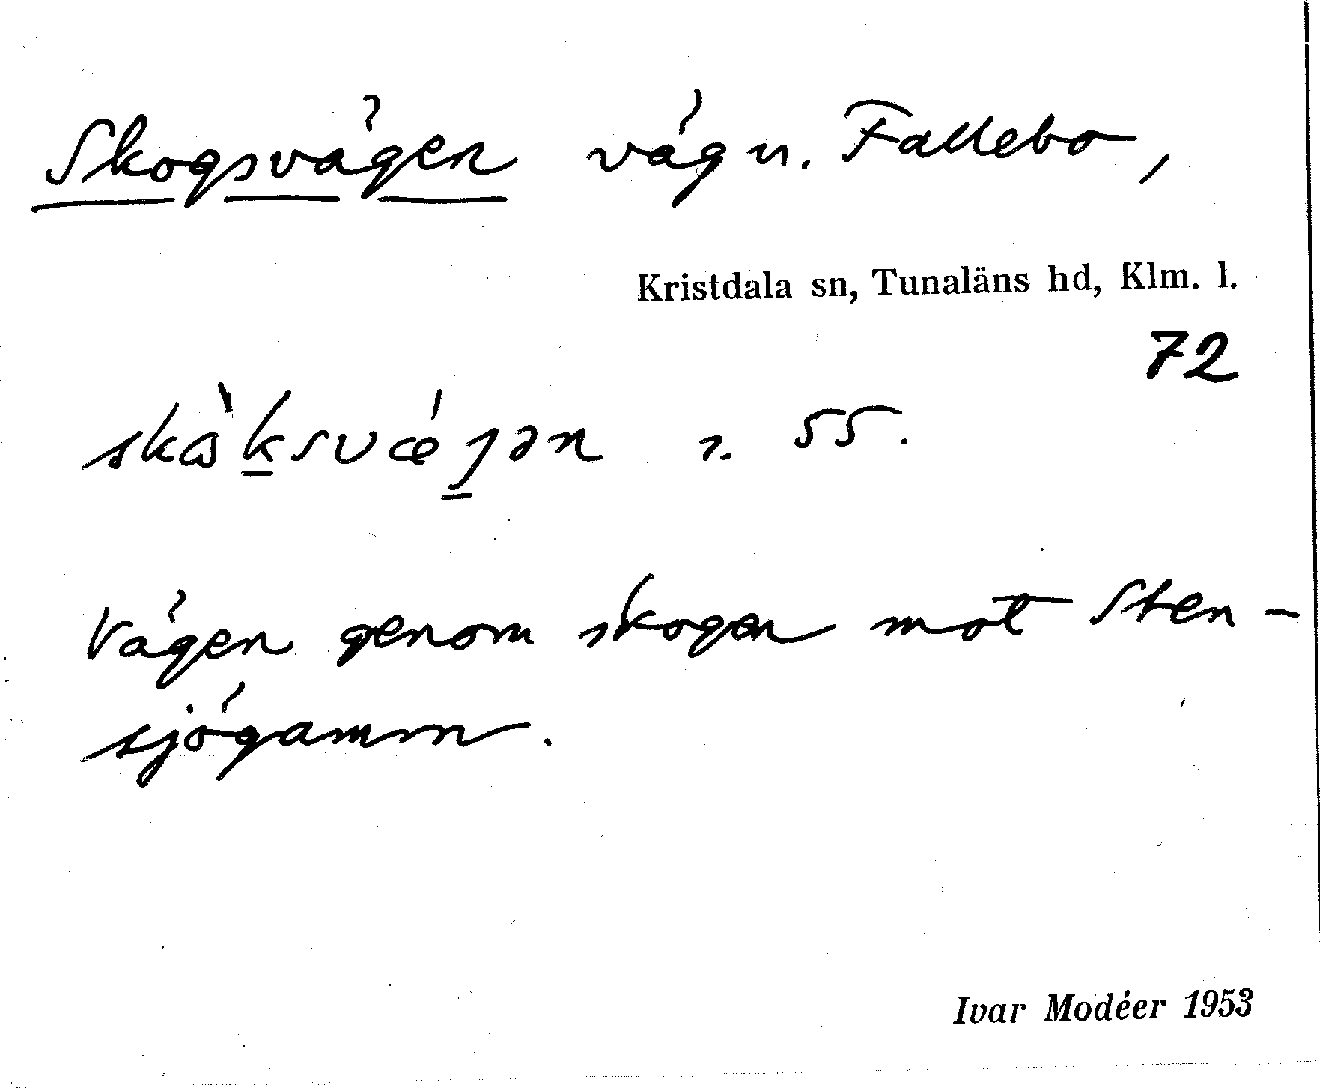 Skogsvägen väg n. Fallebo,
Kristdala sn, Tunaläns hd, Klm. l.
72
skå̀ksvǽjən 1. 55.
Vägen genom skogen mot Sten-
sjögamm.
Ivar Modéer 1953